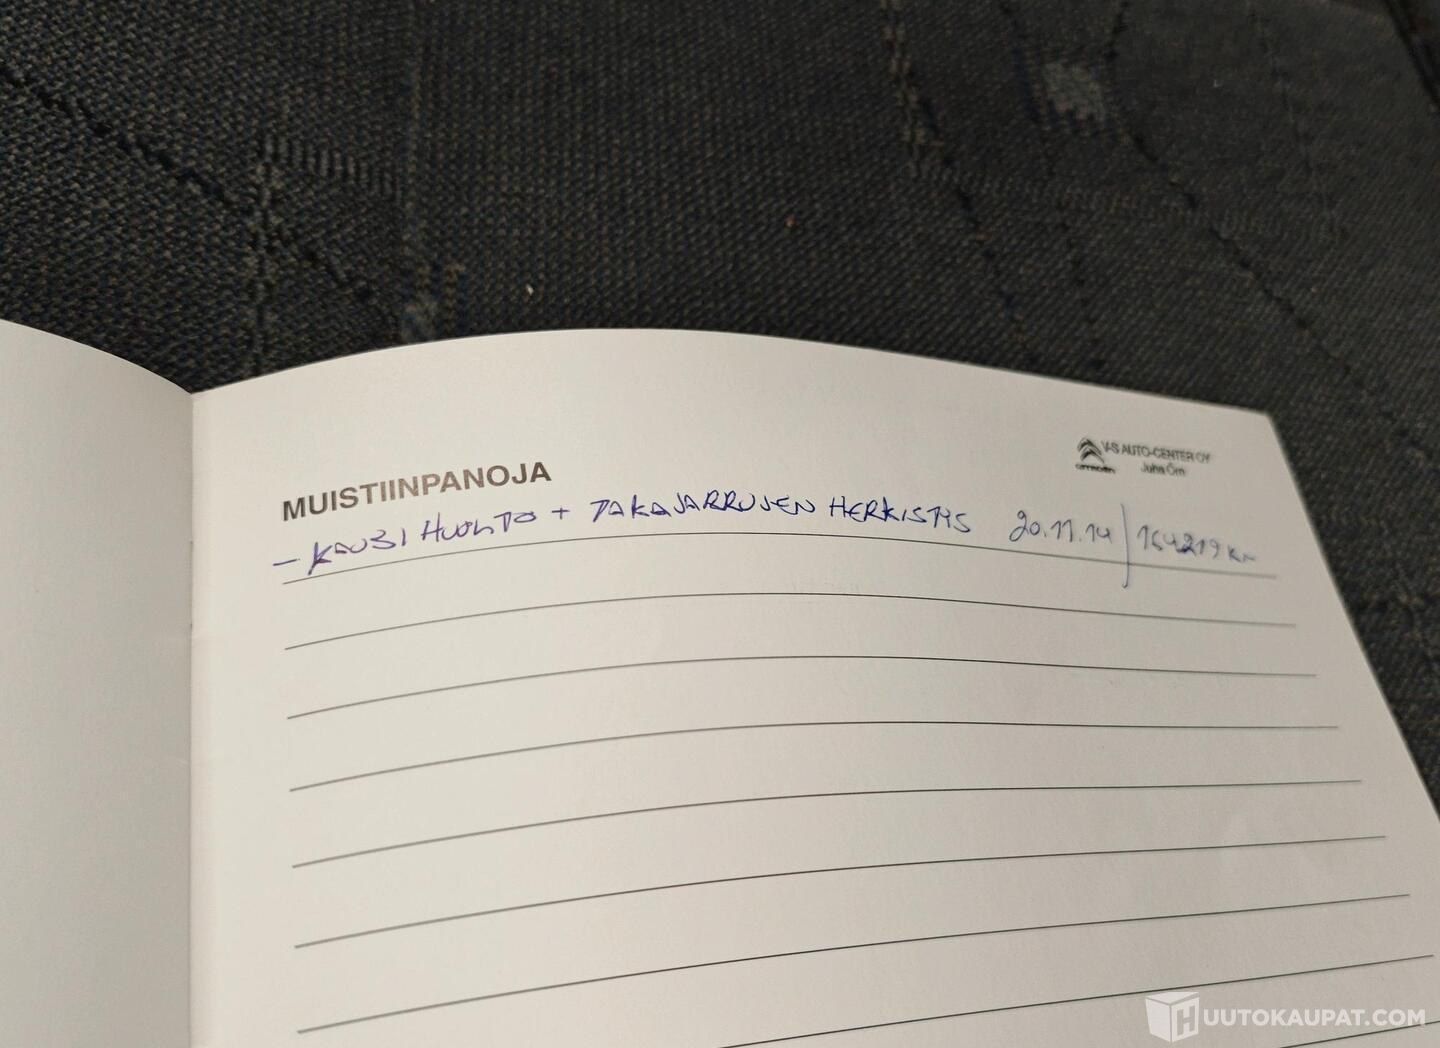 V-S AUTO-CENTER OY
CITROËN Juha Örn
MUISTIINPANOJA
- KAUSI HUOLTO + TAKAJARRUJEN HERKISTYS 20.11.14 / 164219 KM
HUUTOKAUPAT.COM